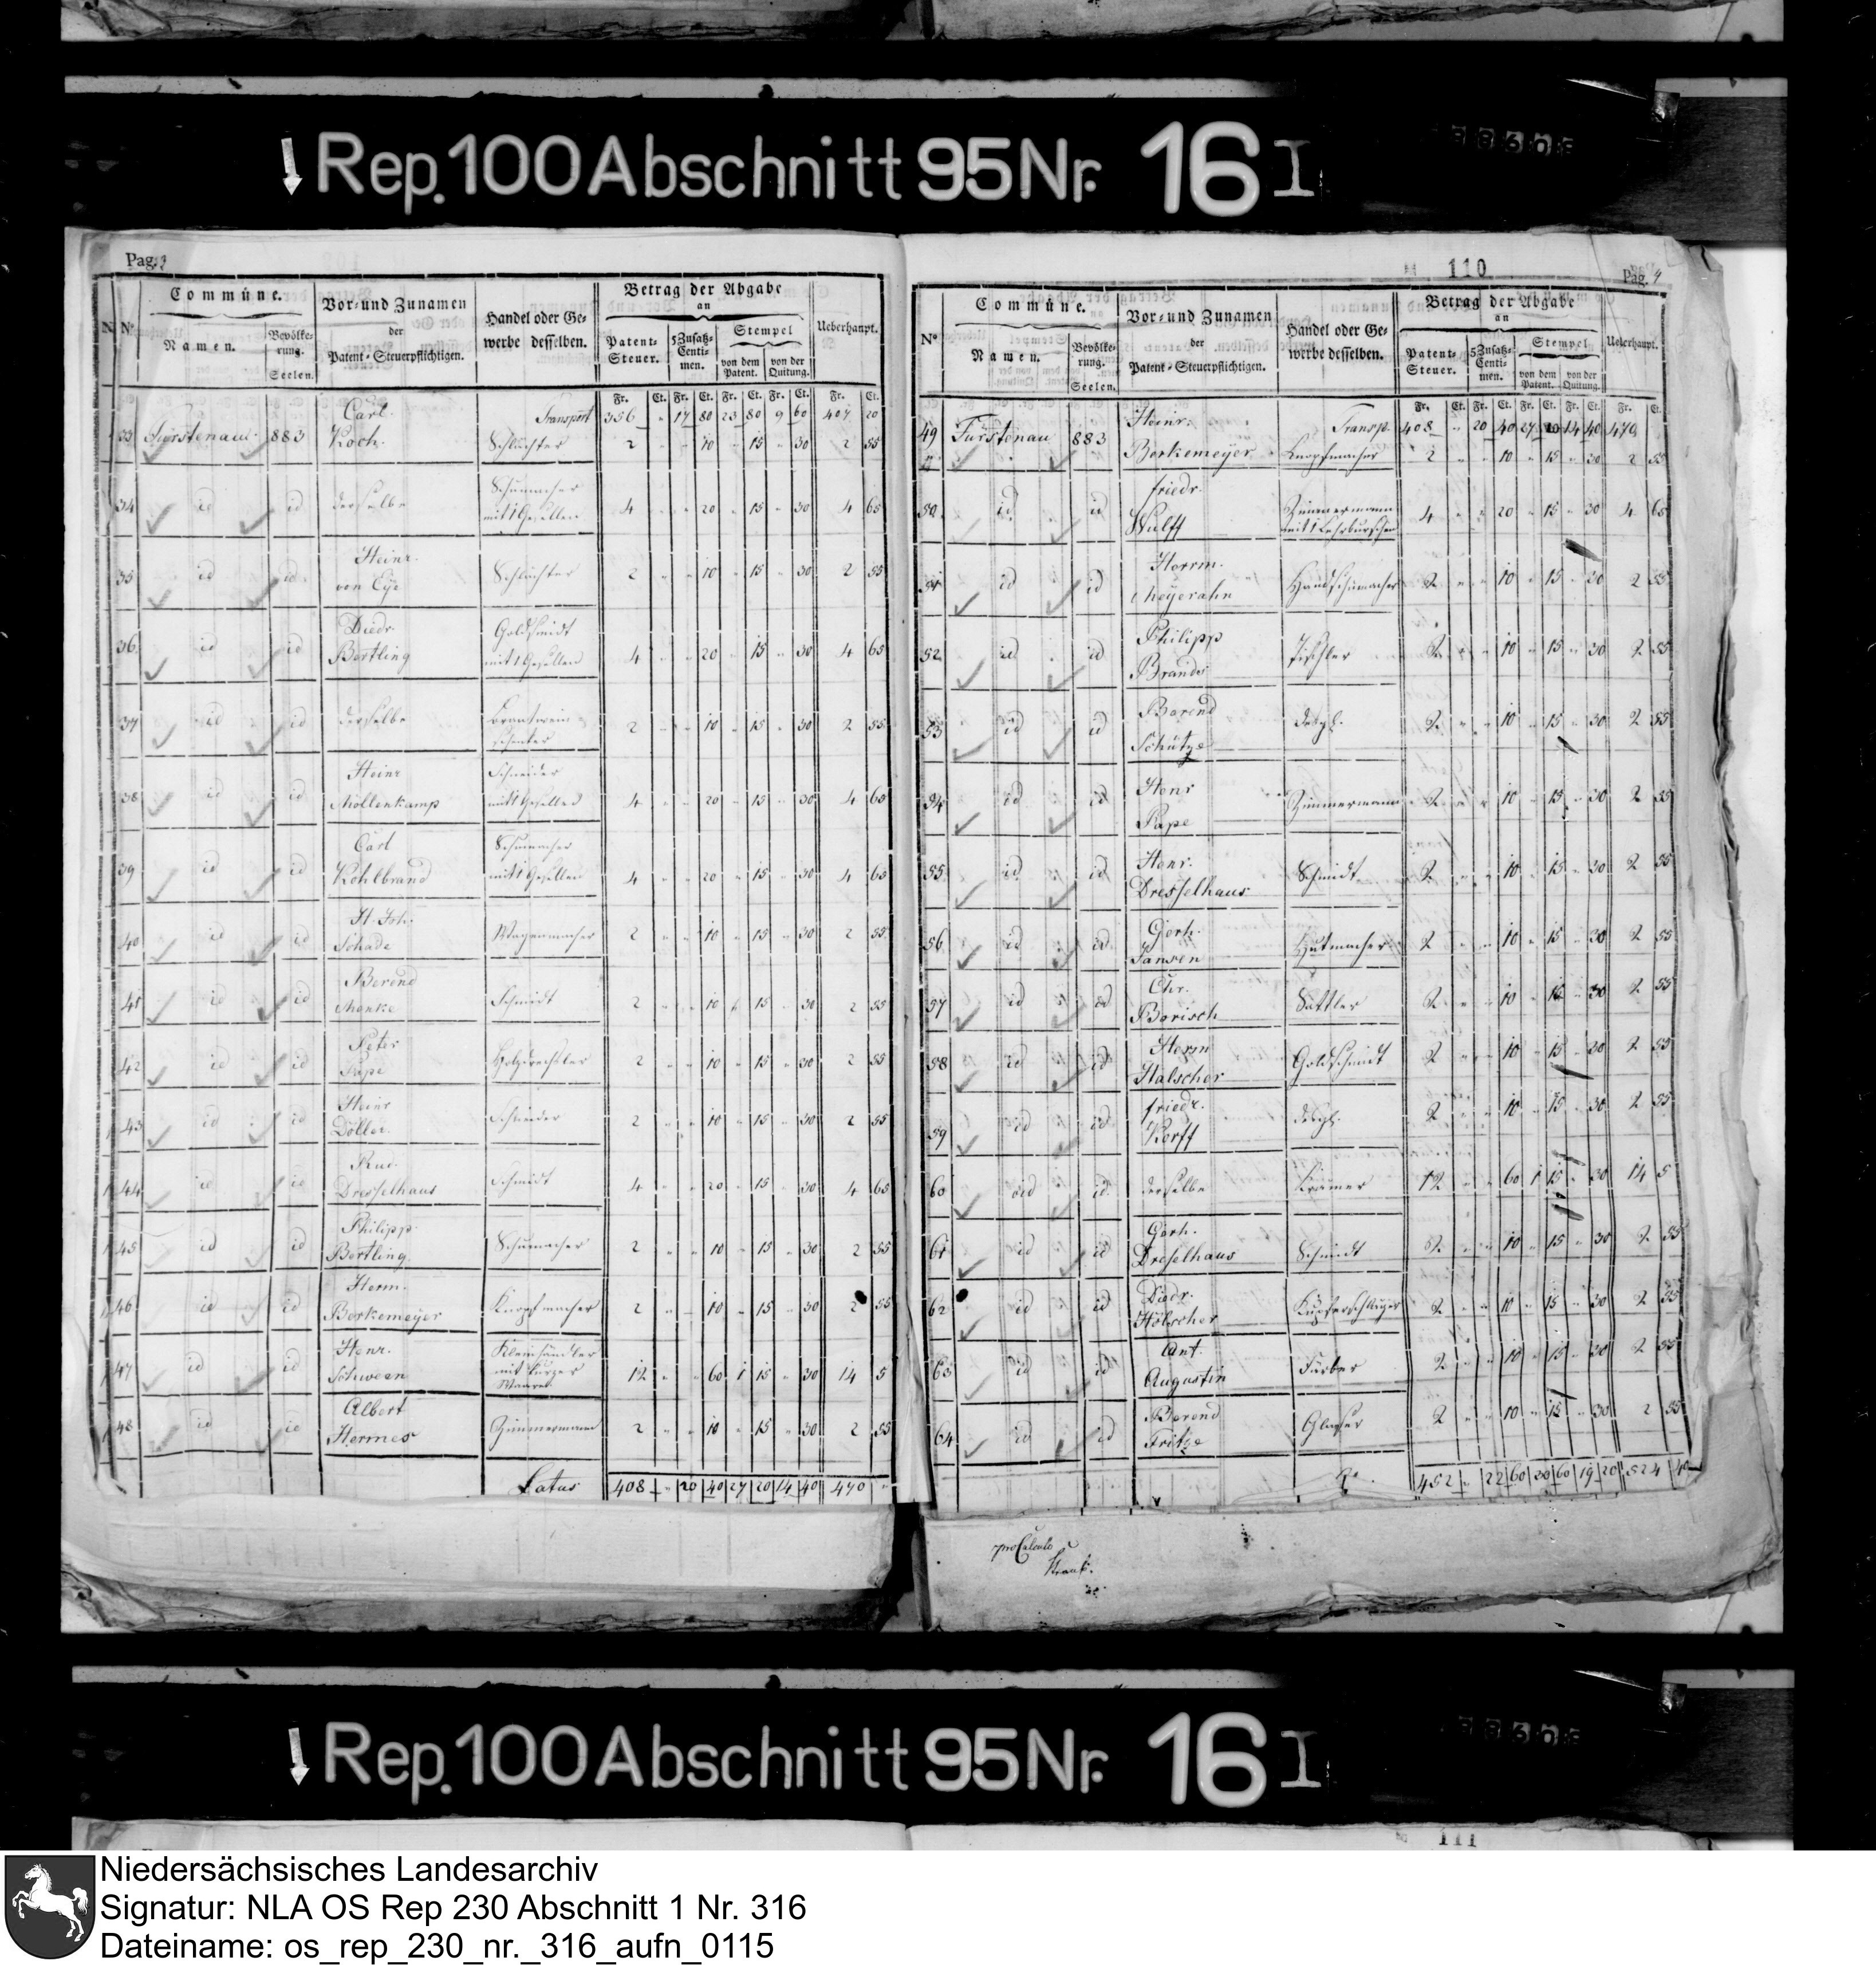 Rep. 100 Abschnitt 95 Nr. 16 I
Pag. 3
Commüne.
Namen.
Bevölkerung. Seelen.
Vor- und Zunamen der Patent-Steuerpflichtigen.
Handel oder Gewerbe desselben.
Betrag der Abgabe an
Patent-Steuer.
5 Zusatz-Centimen.
Stempel
von dem Patent.
von der Quitung.
Ueberhaupt.
Fr. Ct. Fr. Ct. Fr. Ct. Fr. Ct. Fr. Ct.
Transport 356 " 17 80 23 80 9 60 407 20
33 Fürstenau 883 Carl Koch Schlächter 2 " " 10 " 15 " 30 2 55
34 id id derselbe Schumacher mit 1 Gesellen 4 " " 20 " 15 " 30 4 65
35 id id Heinr. von Eye Schlächter 2 " " 10 " 15 " 30 2 55
36 id id Diedr. Bertling Goldschmidt mit 1 Gesellen 4 " " 20 " 15 " 30 4 65
37 id id derselbe Brantwein schenker 2 " " 10 " 15 " 30 2 55
38 id id Heinr Möllenkamp Schneider mit 1 Gesellen 4 " " 20 " 15 " 30 4 65
39 id id Carl Kohlbrand Schumacher mit 1 Gesellen 4 " " 20 " 15 " 30 4 65
40 id id H. Joh. Schade Wagenmacher 2 " " 10 " 15 " 30 2 55
41 id id Berend Menke Schmidt 2 " " 10 " 15 " 30 2 55
42 id id Peter Pape Holzdrechsler 2 " " 10 " 15 " 30 2 55
43 id id Heinr Döller Schneider 2 " " 10 " 15 " 30 2 55
44 id id Rud. Dresselhaus Schmidt 4 " " 20 " 15 " 30 4 65
45 id id Philipp Bertling Schumacher 2 " " 10 " 15 " 30 2 55
46 id id Herm. Berkemeyer Knopfmacher 2 " " 10 " 15 " 30 2 55
47 id id Henr. Schween Kleinhändler mit kurzer Waaren 12 " " 60 1 15 " 30 14 5
48 id id Albert Hermes Zimmermann 2 " " 10 " 15 " 30 2 55
Latus 408 " 20 40 27 20 14 40 470 "
110
Pag. 4
Commüne.
Nº
Namen.
Bevölkerung. Seelen.
Vor- und Zunamen der Patent-Steuerpflichtigen.
Handel oder Gewerbe desselben.
Betrag der Abgabe an
Patent-Steuer.
5 Zusatz-Centimen.
Stempel
von dem Patent.
von der Quitung.
Ueberhaupt.
Fr. Ct. Fr. Ct. Fr. Ct. Fr. Ct. Fr. Ct.
Transp. 408 " 20 40 27 20 14 40 470
49 Fürstenau 883 Heinr. Berkemeyer Knopfmacher 2 " " 10 " 15 " 30 2 55
50 id id friedr. Wulff Zimmermann mit 1 Lehrburschen 4 " " 20 " 15 " 30 4 65
51 id id Herrm. Meyerahn Handschumacher 2 " " 10 " 15 " 30 2 55
52 id id Philipp Brands Tischler 2 " " 10 " 15 " 30 2 55
53 id id Berend Schütze desgl. 2 " " 10 " 15 " 30 2 55
54 id id Henr Pape Zimmermann 2 " " 10 " 15 " 30 2 55
55 id id Henr. Dresselhaus Schmidt 2 " " 10 " 15 " 30 2 55
56 id id Gerh. Jansen Hutmacher 2 " " 10 " 15 " 30 2 55
57 id id Chr. Borisch Sattler 2 " " 10 " 15 " 30 2 55
58 id id Herm Halscher Goldschmidt 2 " " 10 " 15 " 30 2 55
59 id id friedr. Korff desgl. 2 " " 10 " 15 " 30 2 55
60 id id derselbe Krämer 12 " " 60 1 15 " 30 14 5
61 id id Gerh. Dreselhaus Schmidt 2 " " 10 " 15 " 30 2 55
62 id id Diedr. Hölscher Kupferschläger 2 " " 10 " 15 " 30 2 55
63 id id Ant. Augustin Färber 2 " " 10 " 15 " 30 2 55
64 id id Berend Fritze Glaser 2 " " 10 " 15 " 30 2 55
452 " 22 60 30 60 19 20 524 40
pro Calculo
Rep. 100 Abschnitt 95 Nr. 16 I
111
Niedersächsisches Landesarchiv
Signatur: NLA OS Rep 230 Abschnitt 1 Nr. 316
Dateiname: os_rep_230_nr._316_aufn_0115